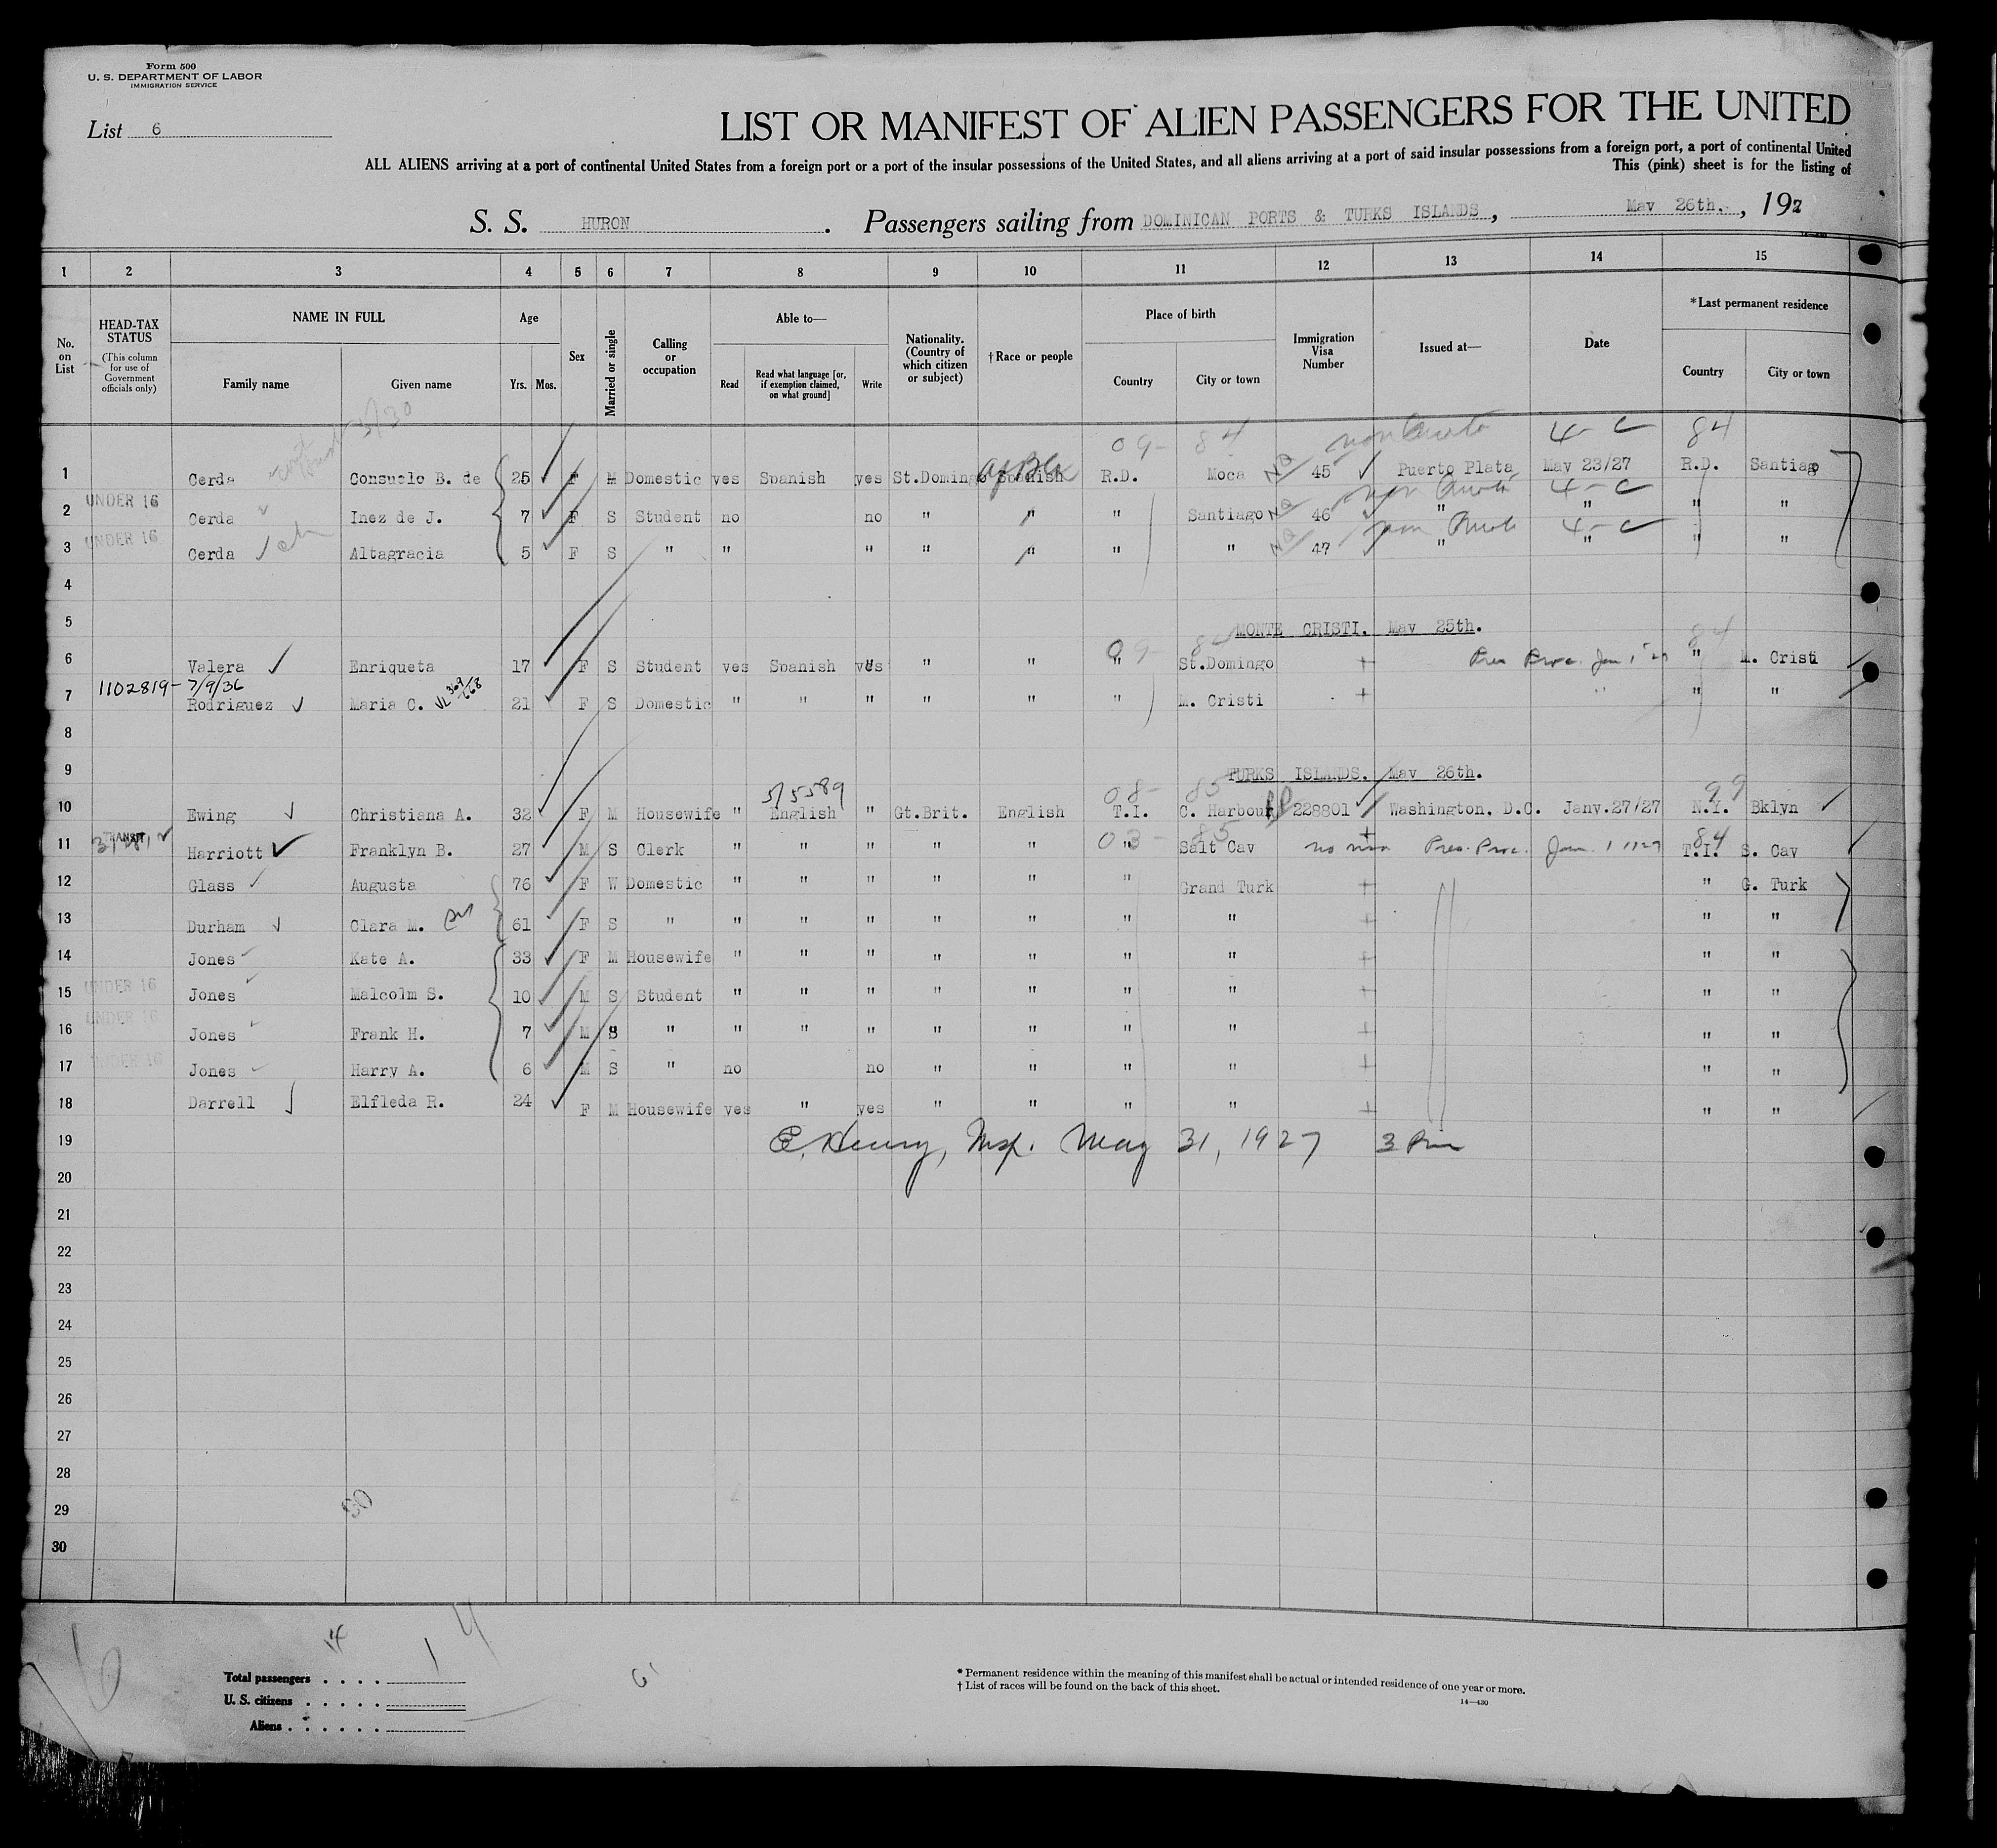 Form 500
U. S. DEPARTMENT OF LABOR
IMMIGRATION SERVICE
List 6
LIST OR MANIFEST OF ALIEN PASSENGERS FOR THE UNITED
ALL ALIENS arriving at a port of continental United States from a foreign port or a port of the insular possessions of the United States, and all aliens arriving at a port of said insular possessions from a foreign port, a port of continental United
This (pink) sheet is for the listing of
S. S. HURON. Passengers sailing from DOMINICAN PORTS & TURKS ISLANDS, May 26th., 192
1 2 3 4 5 6 7 8 9 10 11 12 13 14 15
No. on List
HEAD-TAX STATUS (This column for use of Government officials only)
NAME IN FULL Family name Given name
Age Yrs. Mos.
Sex
Married or single
Calling or occupation
Able to— Read Read what language [or, if exemption claimed, on what ground] Write
Nationality. (Country of which citizen or subject)
† Race or people
Place of birth Country City or town
Immigration Visa Number
Issued at—
Date
*Last permanent residence Country City or town
3/30 09- 84 non Quota 4-C 84
1 Cerda Consuelo B. de 25 F M Domestic yes Spanish yes St.Domingo Spanish R.D. Moca NQ 45 Puerto Plata May 23/27 R.D. Santiago
UNDER 16 non Quota 4-C
2 Cerda Inez de J. 7 F S Student no no " " " Santiago NQ 46 " " " "
UNDER 16 non Quota 4-C
3 Cerda Altagracia 5 F S " " " " " " " NQ 47 " " " "
4
5 MONTE CRISTI. May 25th.
09- 84 84
6 Valera Enriqueta 17 F S Student yes Spanish yes " " " St.Domingo + Pres Proc. Jan 1 " M. Cristi
1102819- 7/9/36
7 Rodriguez Maria C. 21 F S Domestic " " " " " " M. Cristi + " " "
8
9 TURKS ISLANDS. May 26th.
5/5589 08- 85 99
10 Ewing Christiana A. 32 F M Housewife " English " Gt.Brit. English T.I. C. Harbour 228801 Washington, D.C. Jany.27/27 N.Y. Bklyn
TRANSIT 03- 85 84
11 Harriott Franklyn B. 27 M S Clerk " " " " " " Salt Cay + Pres. Proc. Jan. 1 T.I. S. Cay
12 Glass Augusta 76 F W Domestic " " " " " " Grand Turk + " G. Turk
13 Durham Clara M. 61 F S " " " " " " " " + " "
14 Jones Kate A. 33 F M Housewife " " " " " " " + " "
UNDER 16
15 Jones Malcolm S. 10 M S Student " " " " " " " + " "
UNDER 16
16 Jones Frank H. 7 M S " " " " " " " " + " "
UNDER 16
17 Jones Harry A. 6 M S " no no " " " " + " "
18 Darrell Elfleda R. 24 F M Housewife yes " yes " " " " + " "
19 E. Henry, Insp. May 31, 1927 3 Pm
20
21
22
23
24
25
26
27
28
29
30
Total passengers . . . . 14
U. S. citizens . . . . .
Aliens . . . . . .
* Permanent residence within the meaning of this manifest shall be actual or intended residence of one year or more.
† List of races will be found on the back of this sheet.
14—430